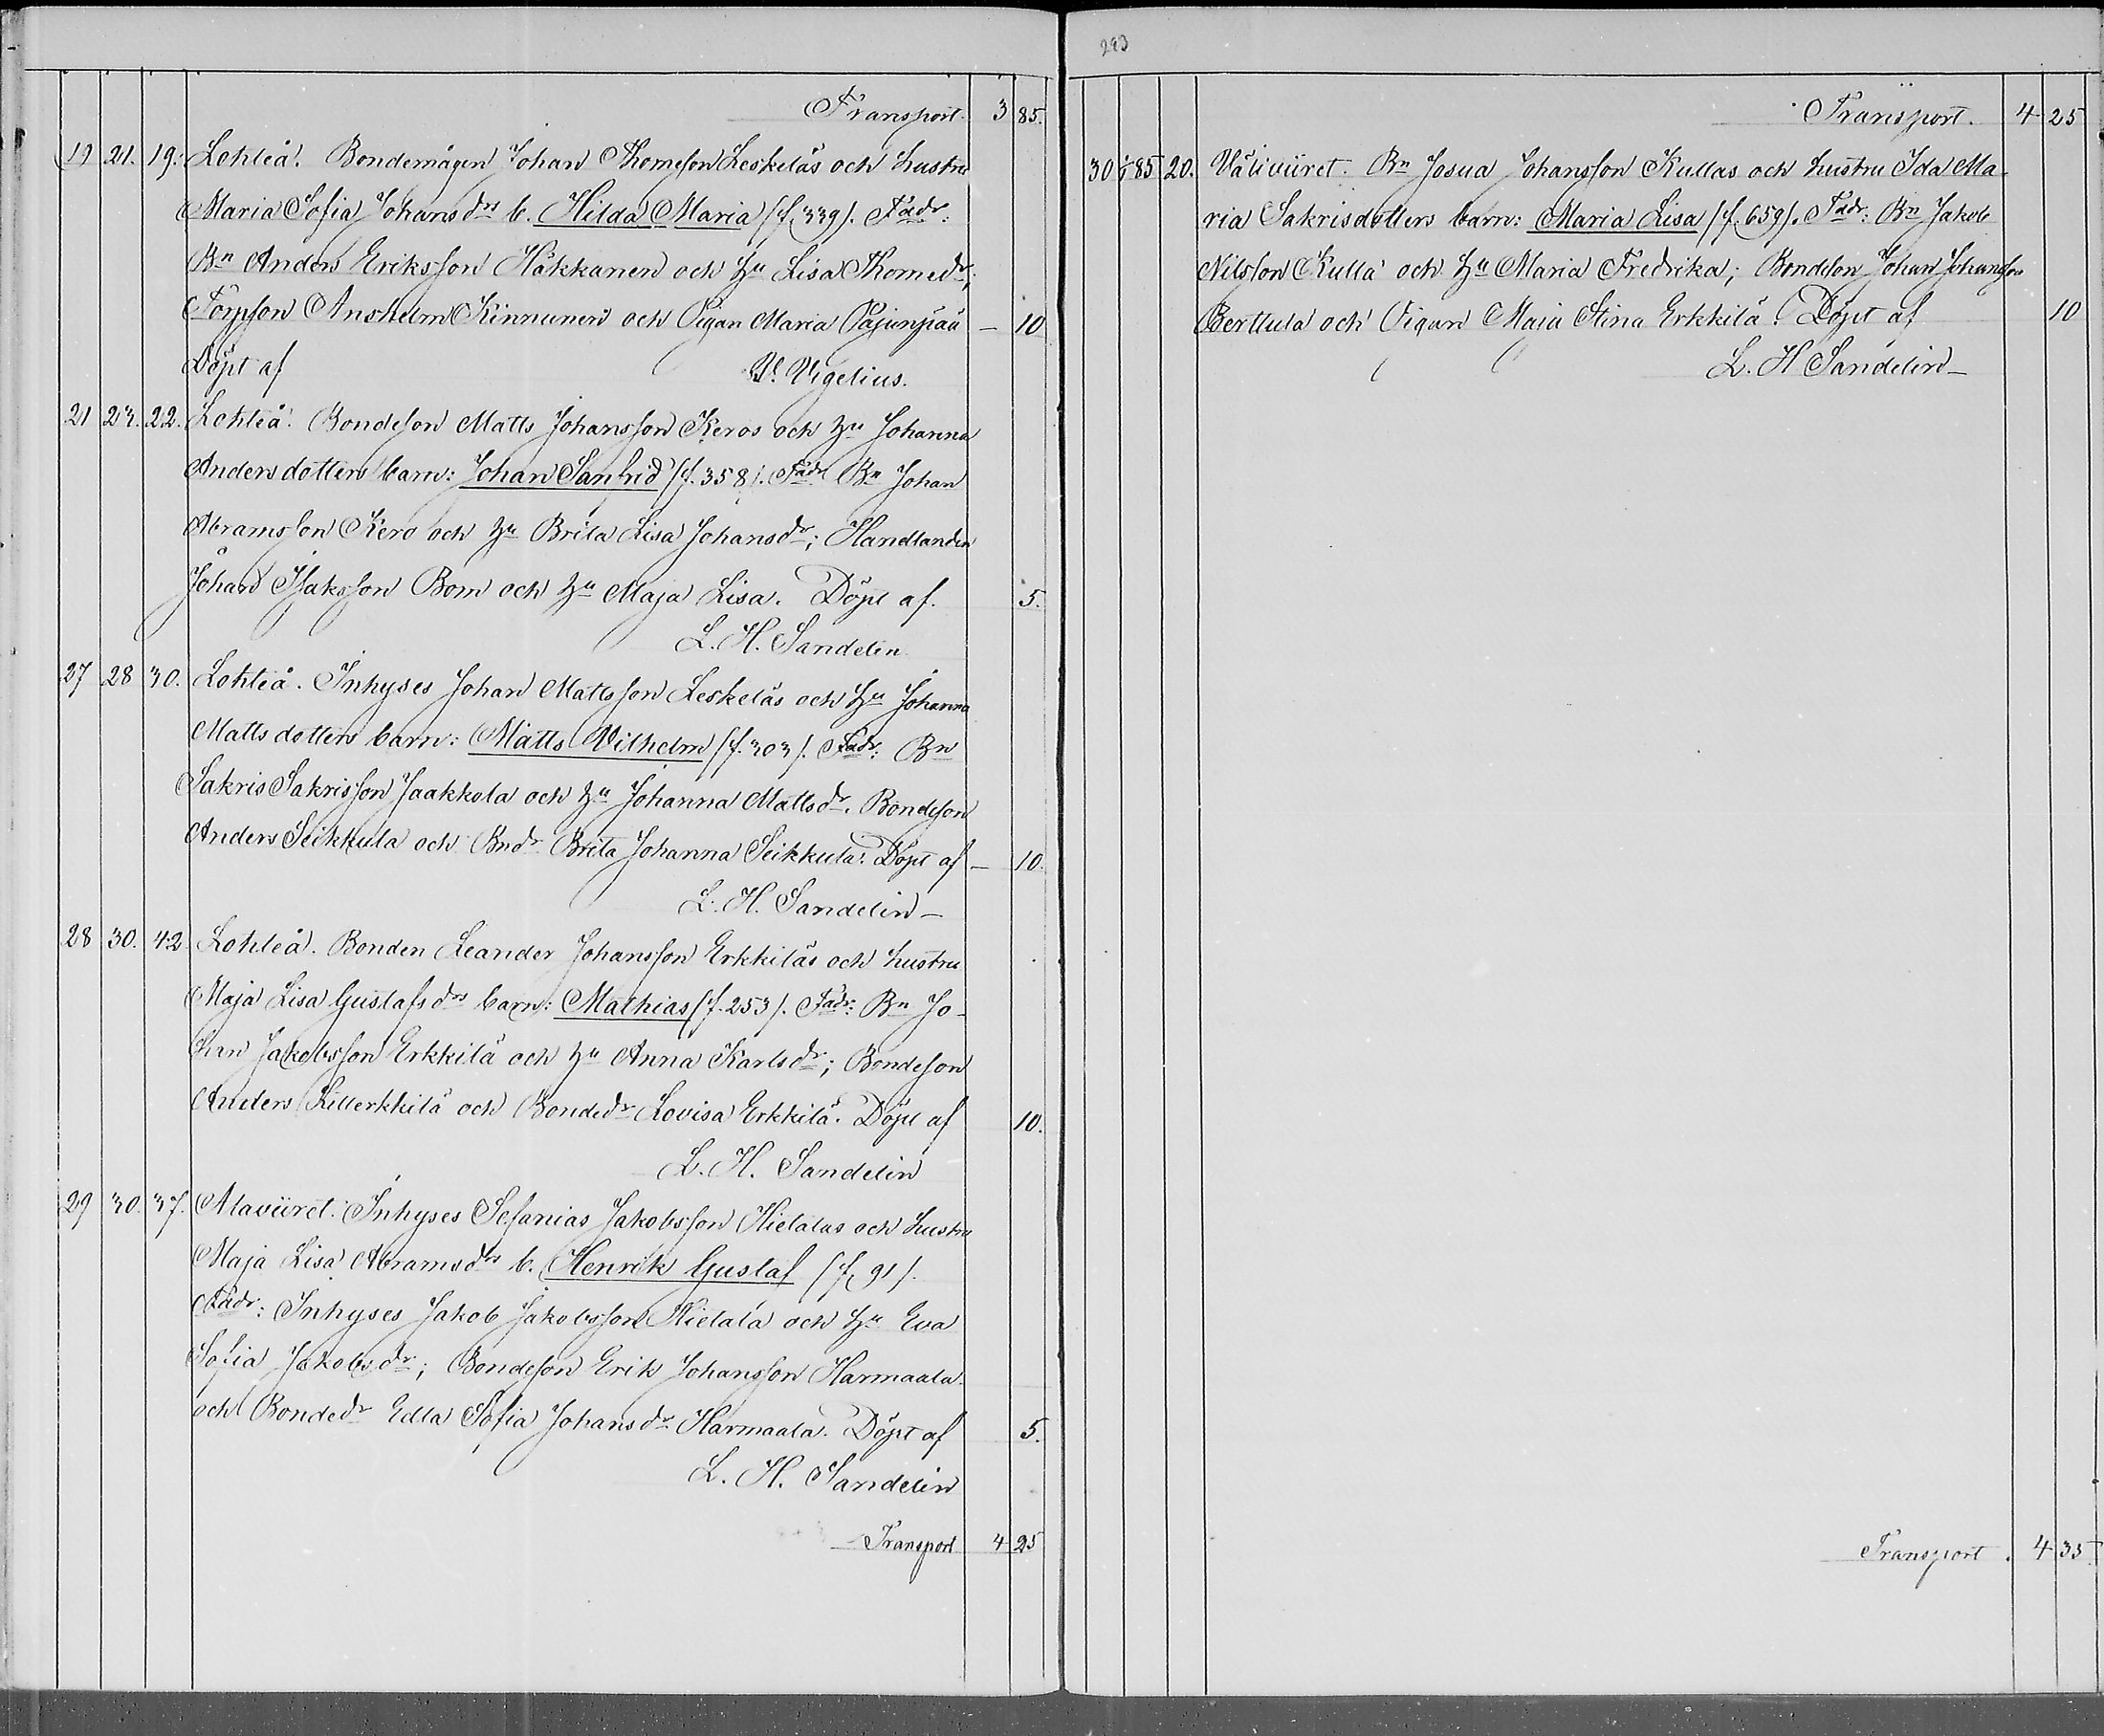 Transport. 3 85.
19 21. 19. Lohteå. Bondemågen Johan Thomesson Leskeläs och hustru
Maria Sofia Johansdrs b. Hilda Maria (f. 339). Fadr:
Bn Anders Eriksson Häkkanen och Hu Lisa Thomedr;
Torpson Anshelm Kinnunen och Pigan Maria Pajunpää — 10
Döpt af V. Vigelius.
21 23. 22. Lohteå. Bondeson Matts Johansson Keros och Hu Johanna
Andersdotters barn: Johan Sanfrid (f. 358). Fadr Bn Johan
Abramsson Kero och Hu Brita Lisa Johansdr; Handlanden
Johan Isaksson Bom och Hu Maja Lisa. Döpt af. 5.
L. H. Sandelin
27 28 30. Lohteå. Inhyses Johan Mattsson Leskeläs och Hu Johanna
Mattsdotters barn: Matts Vilhelm (f. 303). Fadr: Bn
Sakris Sakrisson Jaakkola och Hu Johanna Mattsdr. Bondeson
Anders Seikkula och Bndr Brita Johanna Seikkula. Döpt af — 10.
L. H. Sandelin —
28 30. 42 Lohteå. Bonden Leander Johansson Erkkiläs och hustru
Maja Lisa Gustafsdrs barn: Mathias (f. 253). Fadr: Bn Jo-
han Jakobsson Erkkilä och Hu Anna Karlsdr; Bondeson
Anders Killerkkilä och Bondedr Lovisa Erkkilä. Döpt af 10.
L. H. Sandelin
29 30. 37. Alaviiret. Inhyses Sefanias Jakobsson Hietalas och hustru
Maja Lisa Abramsdrs b. Henrik Gustaf (f. 91).
Fadr: Inhyses Jakob Jakobsson Hietala och Hu Eva
Sofia Jakobsdr; Bondeson Erik Johansson Harmaala
och Bondedr Edla Sofia Johansdr Harmaala. Döpt af 5.
L. H. Sandelin
Transport 4 25
293
Transport. 4 25
30 1/85 20. Väliviiret. Bn Josua Johansson Kullas och hustru Ida Ma-
ria Sakrisdotters barn: Maria Lisa (f. 659). Fadr: Bn Jakob
Nilsson Kulla och Hu Maria Fredrika; Bondeson Johan Johansson
Berttula och Pigan Maja Stina Erkkilä. Döpt af 10
L. H Sandelin —
Transport. 4 35